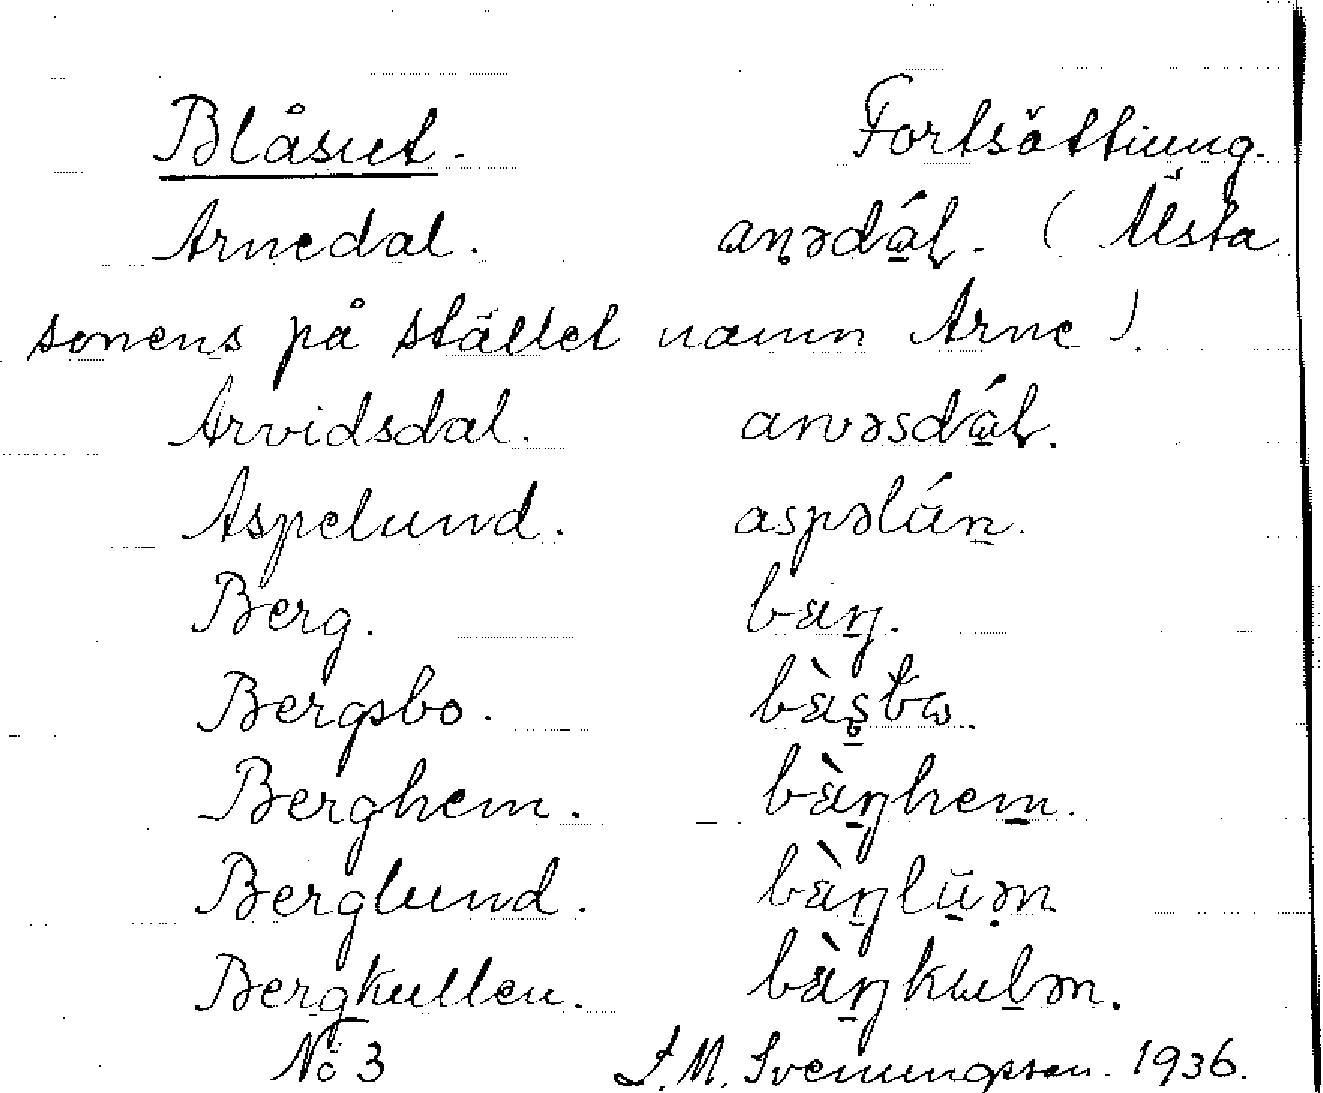 Blåsut. Fortsättning.
Arnedal. an̥ədá̱ɭ. ( Älsta
sonens på stället namn Arne ).
Arvidsdal. arvəsdá̱ɭ.
Aspelund. aspəlán̠.
Berg. bæŋ̠.
Bergsbo. bæ̀s̠bɷ.
Berghem. bæ̀ŋ̠hem̠.
Berglund. bæ̀ŋ̠lu̠̅ən
Bergkullen. bæ̀ŋ̠kɯl̠ən.
No 3 L.M. Svenungsson. 1936.